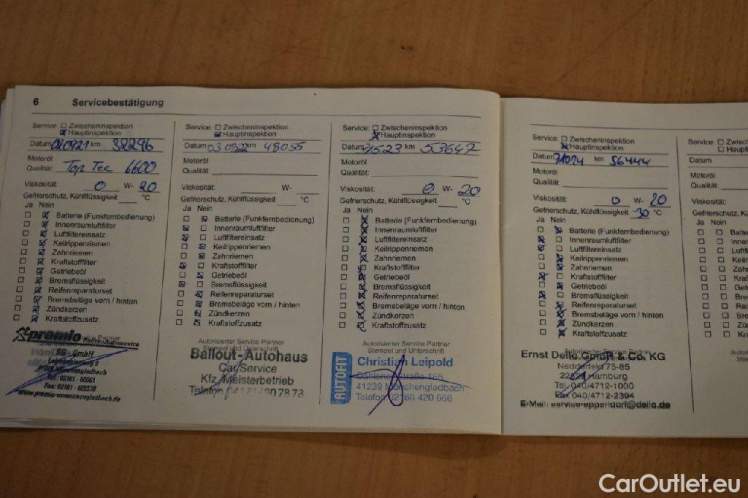 6 Servicebestätigung
Service: Zwischeninspektion
Hauptinspektion
Datum km 38296
Motoröl
Qualität: Top Tec 6600
Viskosität: 0 W- 20
Gefrierschutz, Kühlflüssigkeit °C
Ja Nein
Batterie (Funkfernbedienung)
Innenraumluftfilter
Luftfiltereinsatz
Keilrippenriemen
Zahnriemen
Kraftstofffilter
Getriebeöl
Bremsflüssigkeit
Reifenreparaturset
Bremsbeläge vorn / hinten
Zündkerzen
Kraftstoffzusatz
premio
GmbH
Service: Zwischeninspektion
Hauptinspektion
Datum km 48055
Motoröl
Qualität:
Viskosität: W-
Gefrierschutz, Kühlflüssigkeit °C
Ja Nein
Batterie (Funkfernbedienung)
Innenraumluftfilter
Luftfiltereinsatz
Keilrippenriemen
Zahnriemen
Kraftstofffilter
Getriebeöl
Bremsflüssigkeit
Reifenreparaturset
Bremsbeläge vorn / hinten
Zündkerzen
Kraftstoffzusatz
Autorisierter Service Partner
Stempel und Unterschrift
Ballout-Autohaus
Car Service
Kfz Meisterbetrieb
Telefon
Service: Zwischeninspektion
Hauptinspektion
Datum km 53647
Motoröl
Qualität:
Viskosität: 0 W- 20
Gefrierschutz, Kühlflüssigkeit °C
Ja Nein
Batterie (Funkfernbedienung)
Innenraumluftfilter
Luftfiltereinsatz
Keilrippenriemen
Zahnriemen
Kraftstofffilter
Getriebeöl
Bremsflüssigkeit
Reifenreparaturset
Bremsbeläge vorn / hinten
Zündkerzen
Kraftstoffzusatz
Autorisierter Service Partner
Stempel und Unterschrift
AUTOFIT
Christian Leipold
41239 Mönchengladbach
Telefon 02166 420 666
Service: Zwischeninspektion
Hauptinspektion
Datum km 56444
Motoröl
Qualität:
Viskosität: 0 W- 20
Gefrierschutz, Kühlflüssigkeit 30 °C
Ja Nein
Batterie (Funkfernbedienung)
Innenraumluftfilter
Luftfiltereinsatz
Keilrippenriemen
Zahnriemen
Kraftstofffilter
Getriebeöl
Bremsflüssigkeit
Reifenreparaturset
Bremsbeläge vorn / hinten
Zündkerzen
Kraftstoffzusatz
Autorisierter Service Partner
Stempel und Unterschrift
Ernst Dello GmbH & Co. KG
Nedderfeld 75-85
Hamburg
Tel. 040/4712-1000
Fax 040/4712-2394
E-Mail: service-eppendorf@dello.de
Service:
Datum
Motoröl
Qualität:
Viskosität:
Gefrierschutz,
Ja Nein
CarOutlet.eu